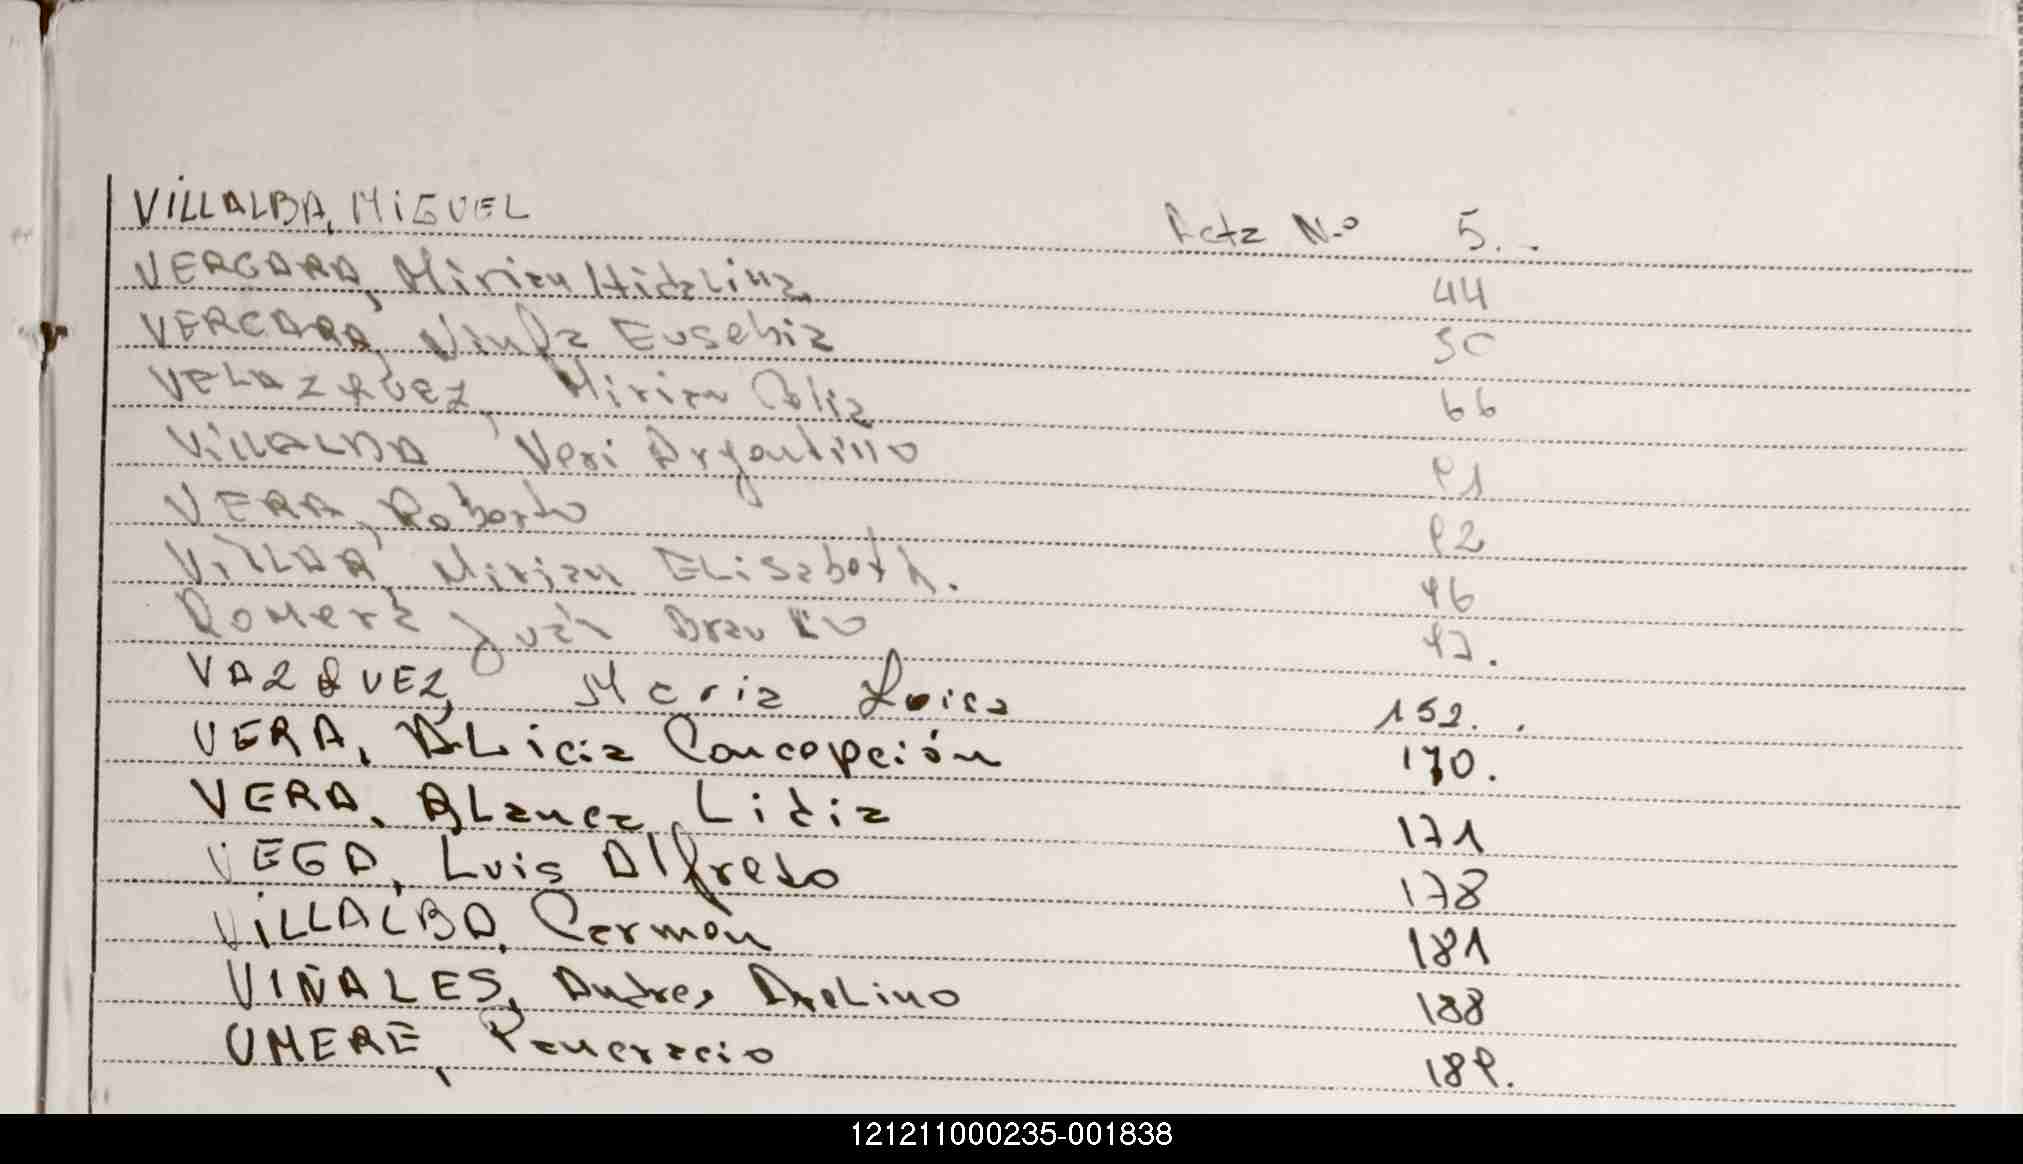 VILLALBA, MIGUEL Acta N.o 5.
VERGARA, Mirian Hidalina 44
VERGARA, Ninfa Eusebia 50
VELAZQUEZ, Mirian Celia 66
VILLALBA Veri Argentino 91
VERA, Roberto 92
VILLAR, Mirian ELisabeth. 96
Romero Juan Braulio 97.
VAZQUEZ, Maria Luisa 152.
VERA, ALicia Concepción 170.
VERA, BLanca Lidia 171
VEGA, Luis Alfredo 178
VILLALBA, Carmen 181
VIÑALES, Andres AveLino 188
UMERE, Pancracio 189.
121211000235-001838